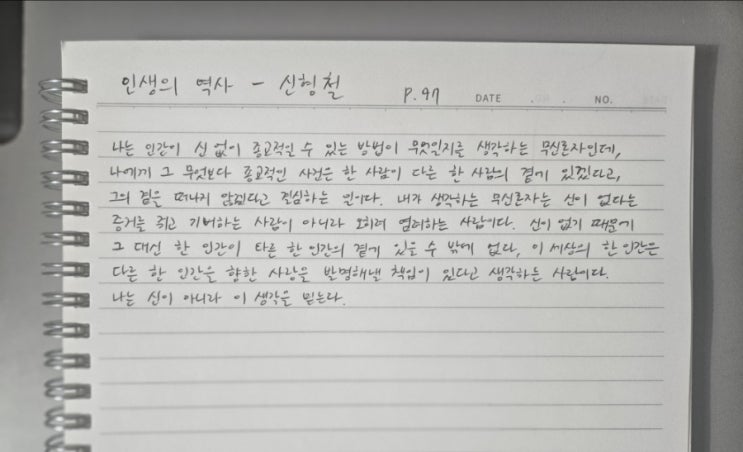 인생의 역사 - 신형철 P.97 DATE . . NO.
나는 인간이 신 없이 종교적일 수 있는 방법이 무엇일지를 생각하는 무신론자인데,
나에게 그 무엇보다 종교적인 사건은 한 사람이 다른 한 사람의 곁에 있겠다고,
그의 곁을 떠나지 않겠다고 결심하는 일이다. 내가 생각하는 무신론자는 신이 없다는
증거를 쥐고 기뻐하는 사람이 아니라 오히려 염려하는 사람이다. 신이 없기 때문에
그 대신 한 인간이 다른 한 인간의 곁에 있을 수 밖에 없다, 이 세상의 한 인간은
다른 한 인간을 향한 사랑을 발명해낼 책임이 있다고 생각하는 사람이다.
나는 신이 아니라 이 생각을 믿는다.